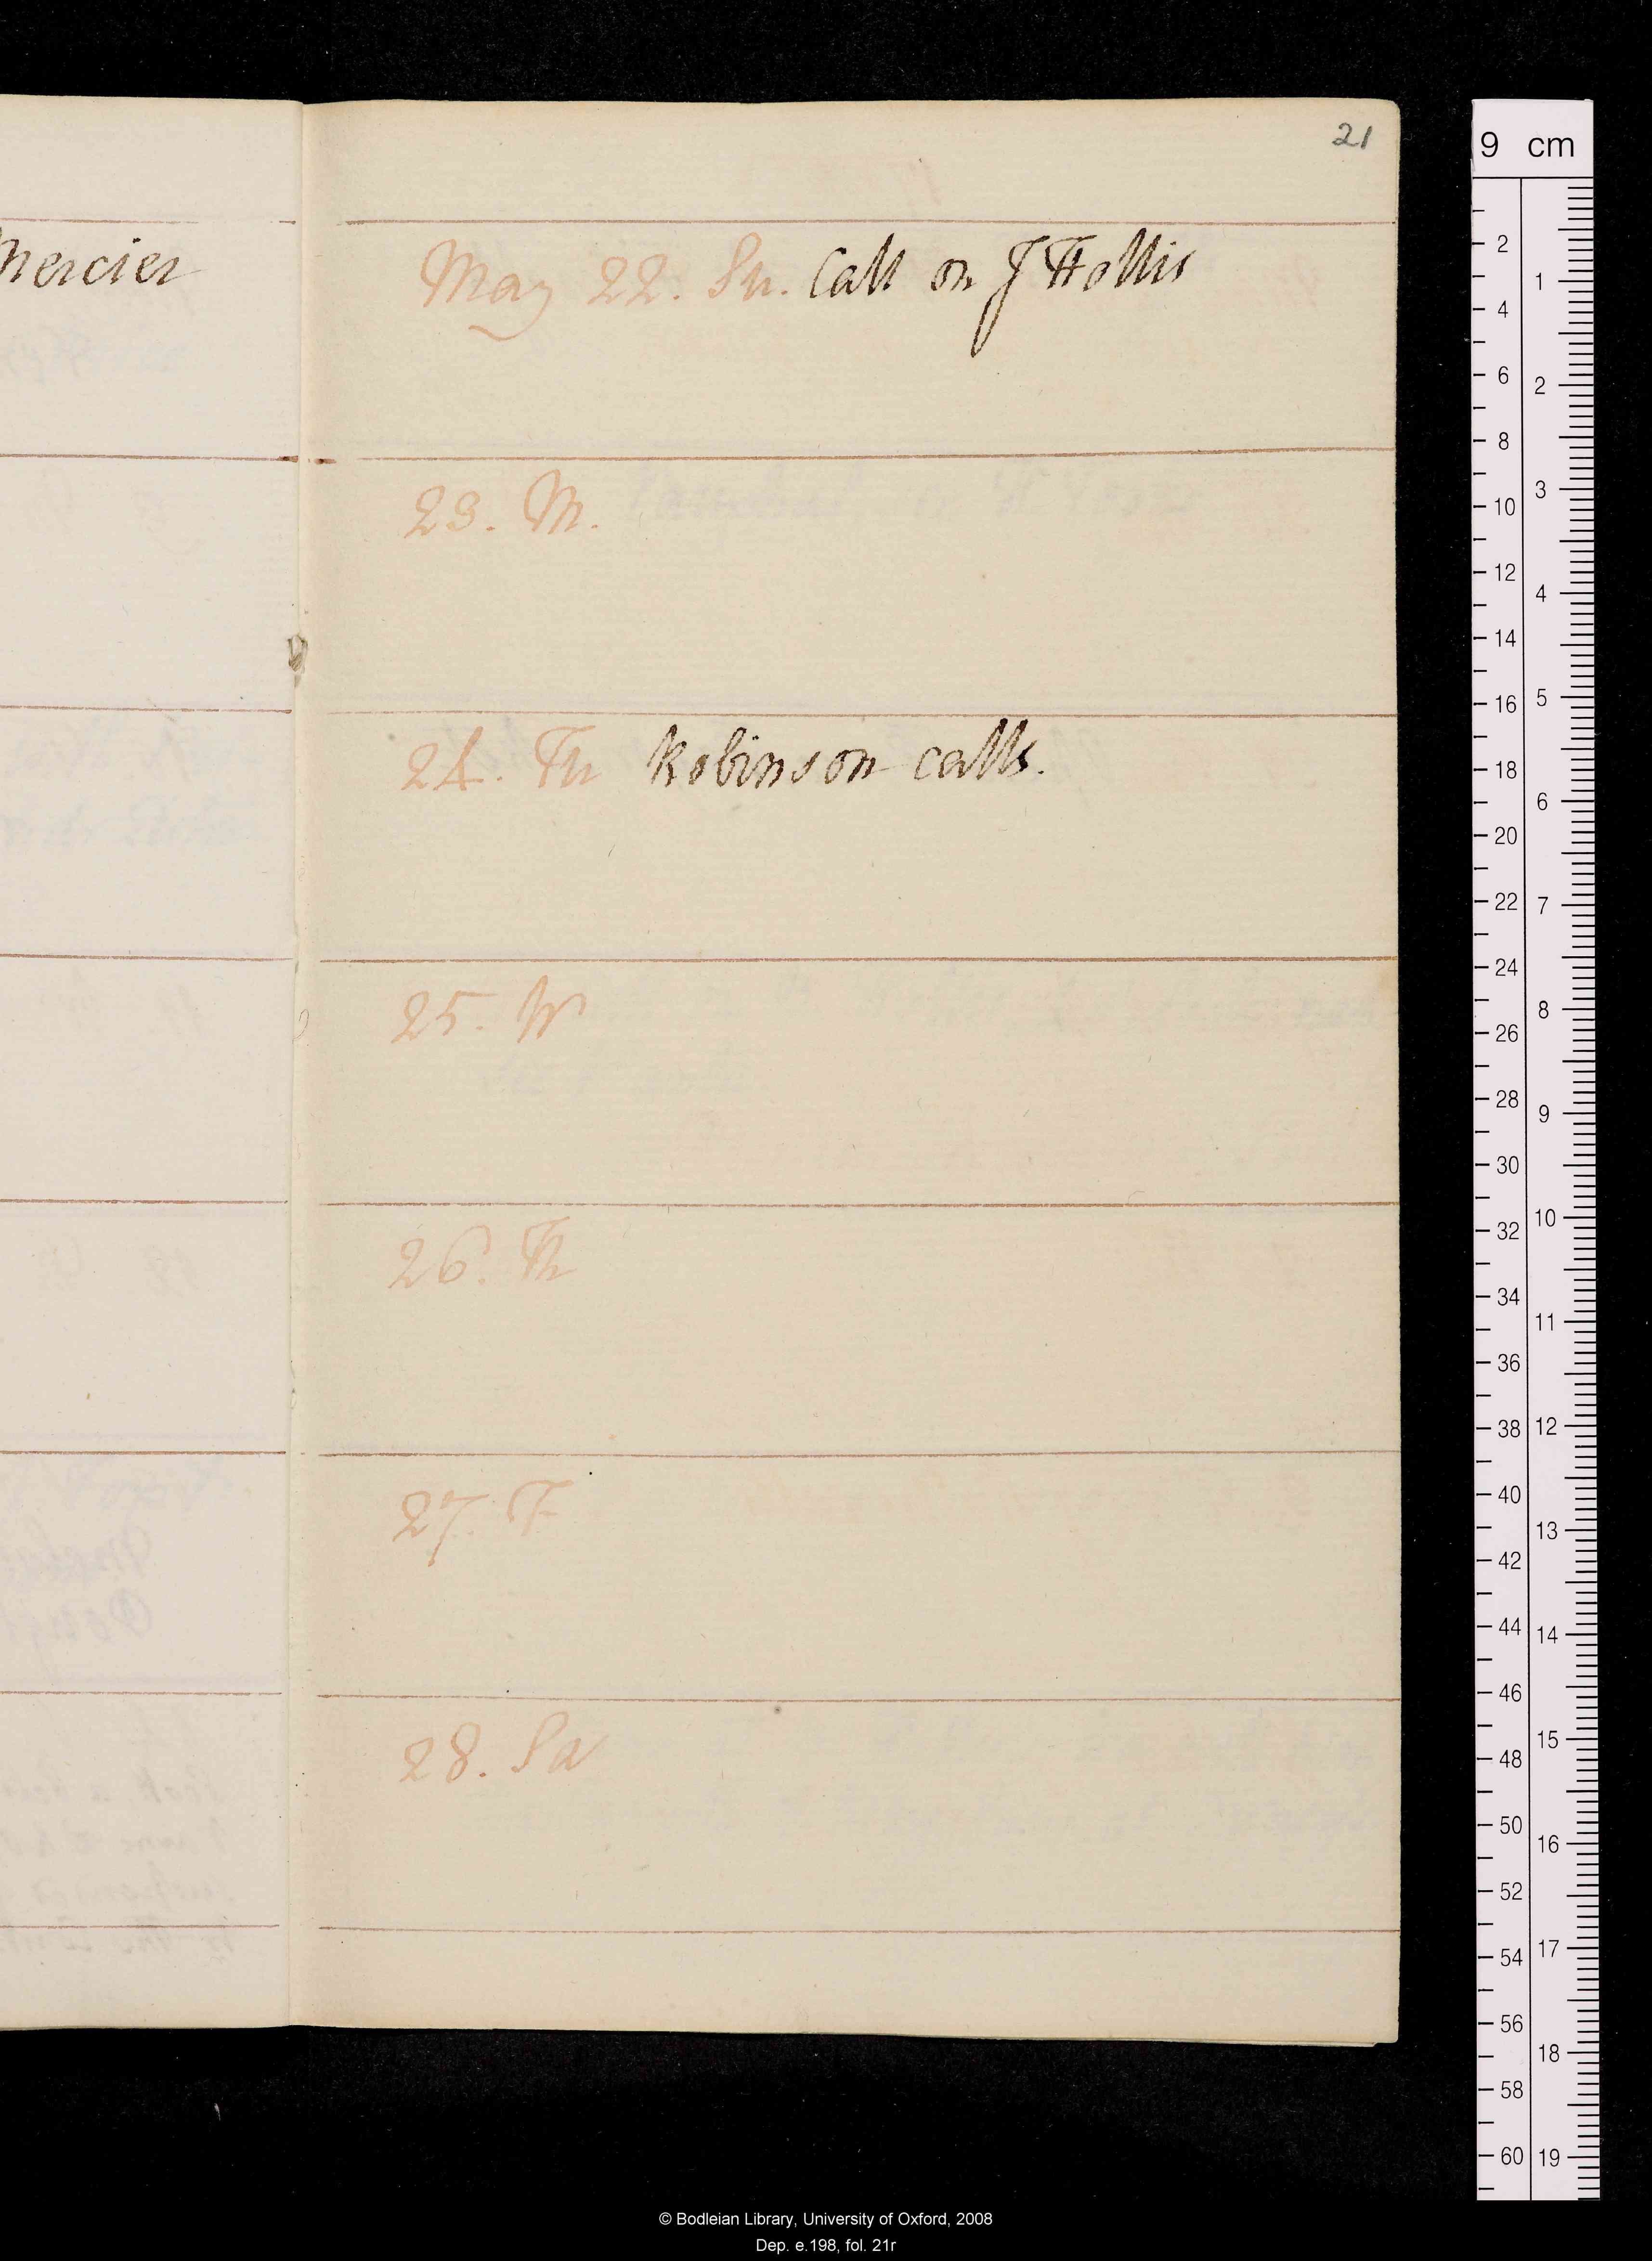 21
Mercier
May 22. Su. Call on J Hollis
23. M.
24. Tu Robinson calls.
25. W
26. Th
27. F
28. Sa
9 cm
2
4
6
8
10
12
14
16
18
20
22
24
26
28
30
32
34
36
38
40
42
44
46
48
50
52
54
56
58
60
1
2
3
4
5
6
7
8
9
10
11
12
13
14
15
16
17
18
19
© Bodleian Library, University of Oxford, 2008
Dep. e.198, fol. 21r